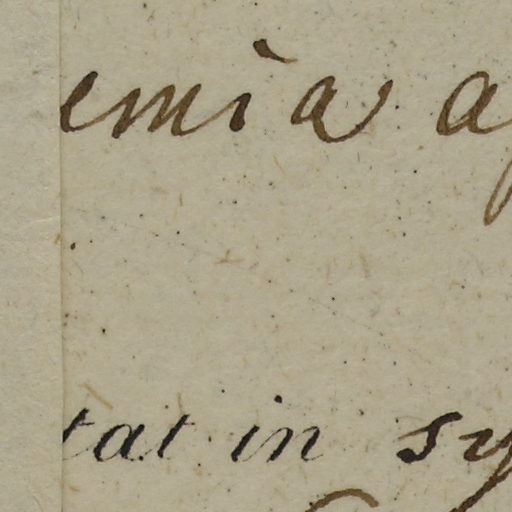 emia a
tat in sy